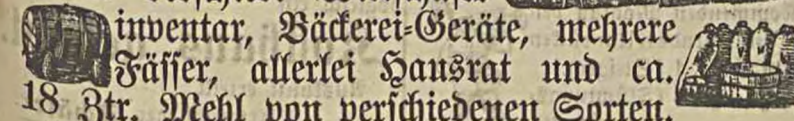 inventar, Bäckerei-Geräte, mehrere
Fässer, allerlei Hausrat und ca.
18 Ztr. Mehl von verschiedenen Sorten.